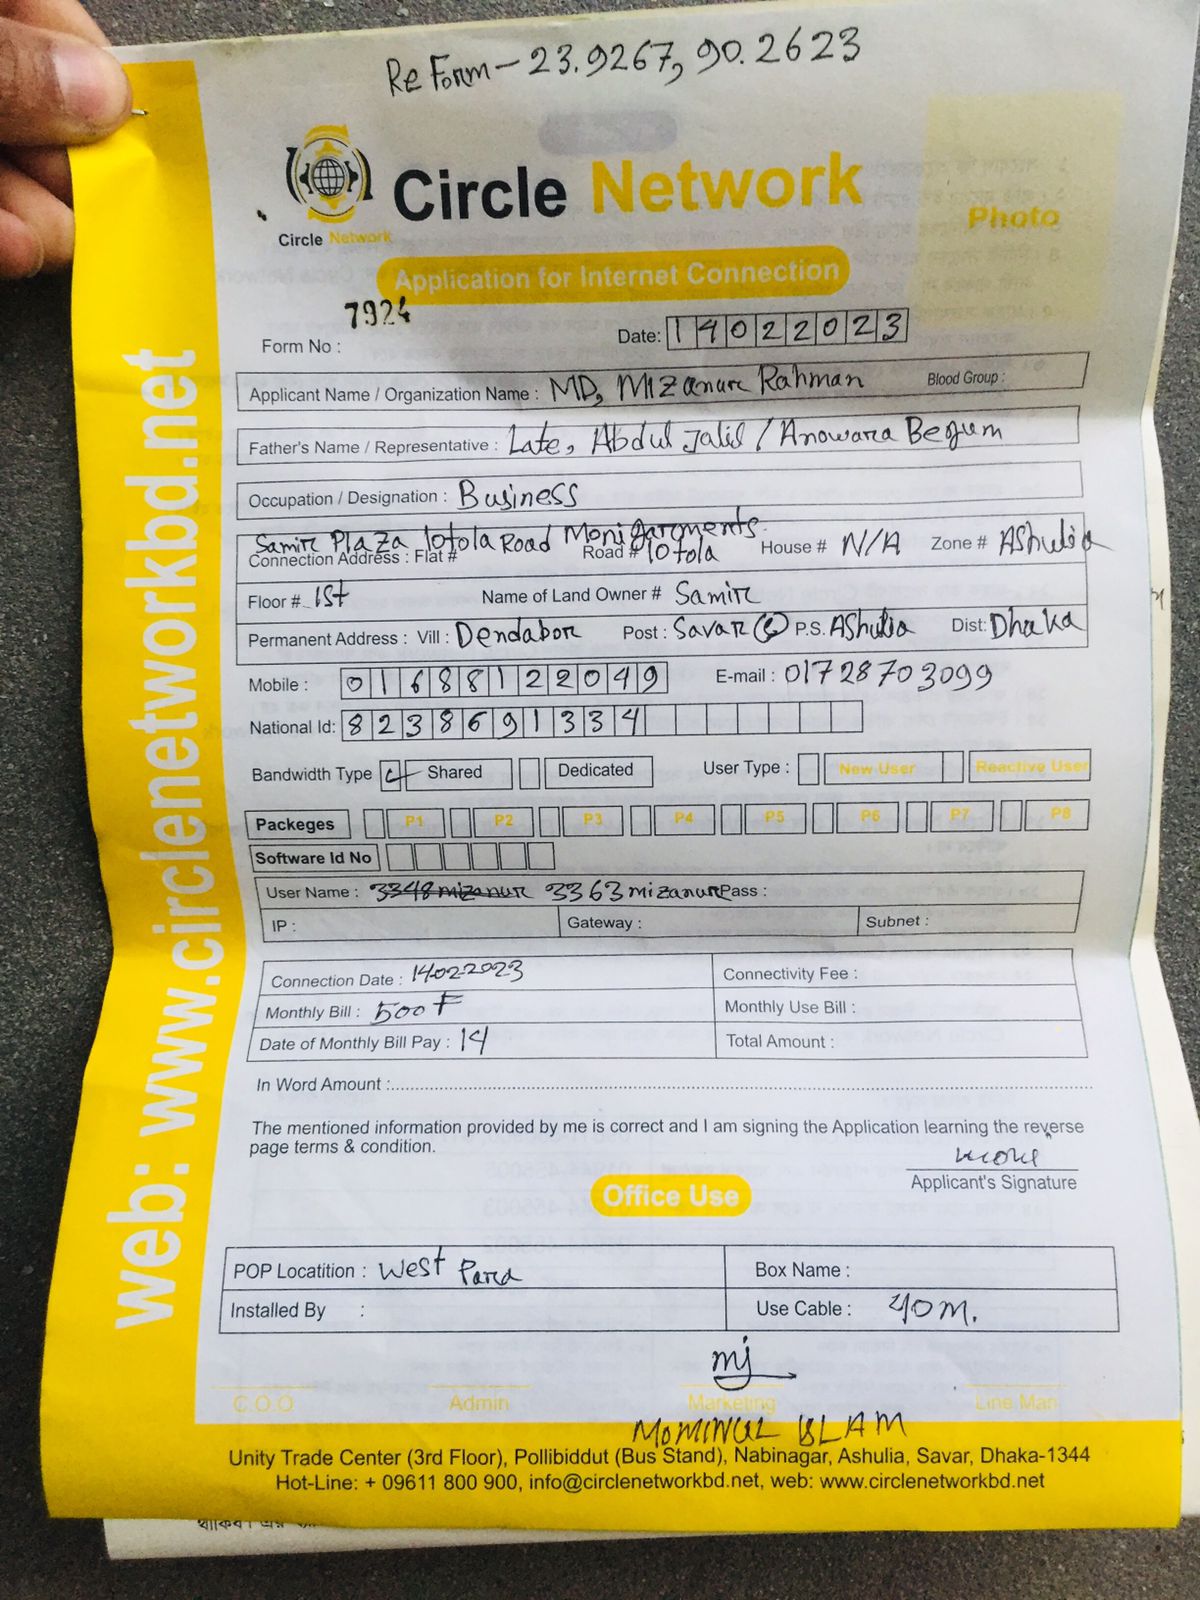 Re Form - 23.9267, 90.2623
Circle Network
Circle Network
Photo
Application for Internet Connection
7924
Form No :
Date: 14022023
Applicant Name / Organization Name : MD, Mizanur Rahman Blood Group :
Father's Name / Representative : Late, Abdul Jalil / Anowara Begum
Occupation / Designation : Business
Samir Plaza 10tola Road Moni garments.
Connection Address : Flat # Road # 10tola House # N/A Zone # Ashulia
Floor # 1st Name of Land Owner # Samir
Permanent Address : Vill : Dendabor Post : Savar P.S. Ashulia Dist: Dhaka
Mobile : 01688122049 E-mail : 01728703099
National Id: 8238691334
Bandwidth Type Shared Dedicated User Type : New User Reactive User
Packeges P1 P2 P3 P4 P5 P6 P7 P8
Software Id No
User Name : 3348mizanur 3363mizanur Pass :
IP : Gateway : Subnet :
Connection Date : 14022023 Connectivity Fee :
Monthly Bill : 500 Monthly Use Bill :
Date of Monthly Bill Pay : 14 Total Amount :
In Word Amount :
The mentioned information provided by me is correct and I am signing the Application learning the reverse
page terms & condition.
Applicant's Signature
Office Use
POP Locatition : West Para Box Name :
Installed By : Use Cable : 40m.
mj
C.O.O Admin Marketing Line Man
MOMINUL ISLAM
Unity Trade Center (3rd Floor), Pollibiddut (Bus Stand), Nabinagar, Ashulia, Savar, Dhaka-1344
Hot-Line: + 09611 800 900, info@circlenetworkbd.net, web: www.circlenetworkbd.net
web: www.circlenetworkbd.net